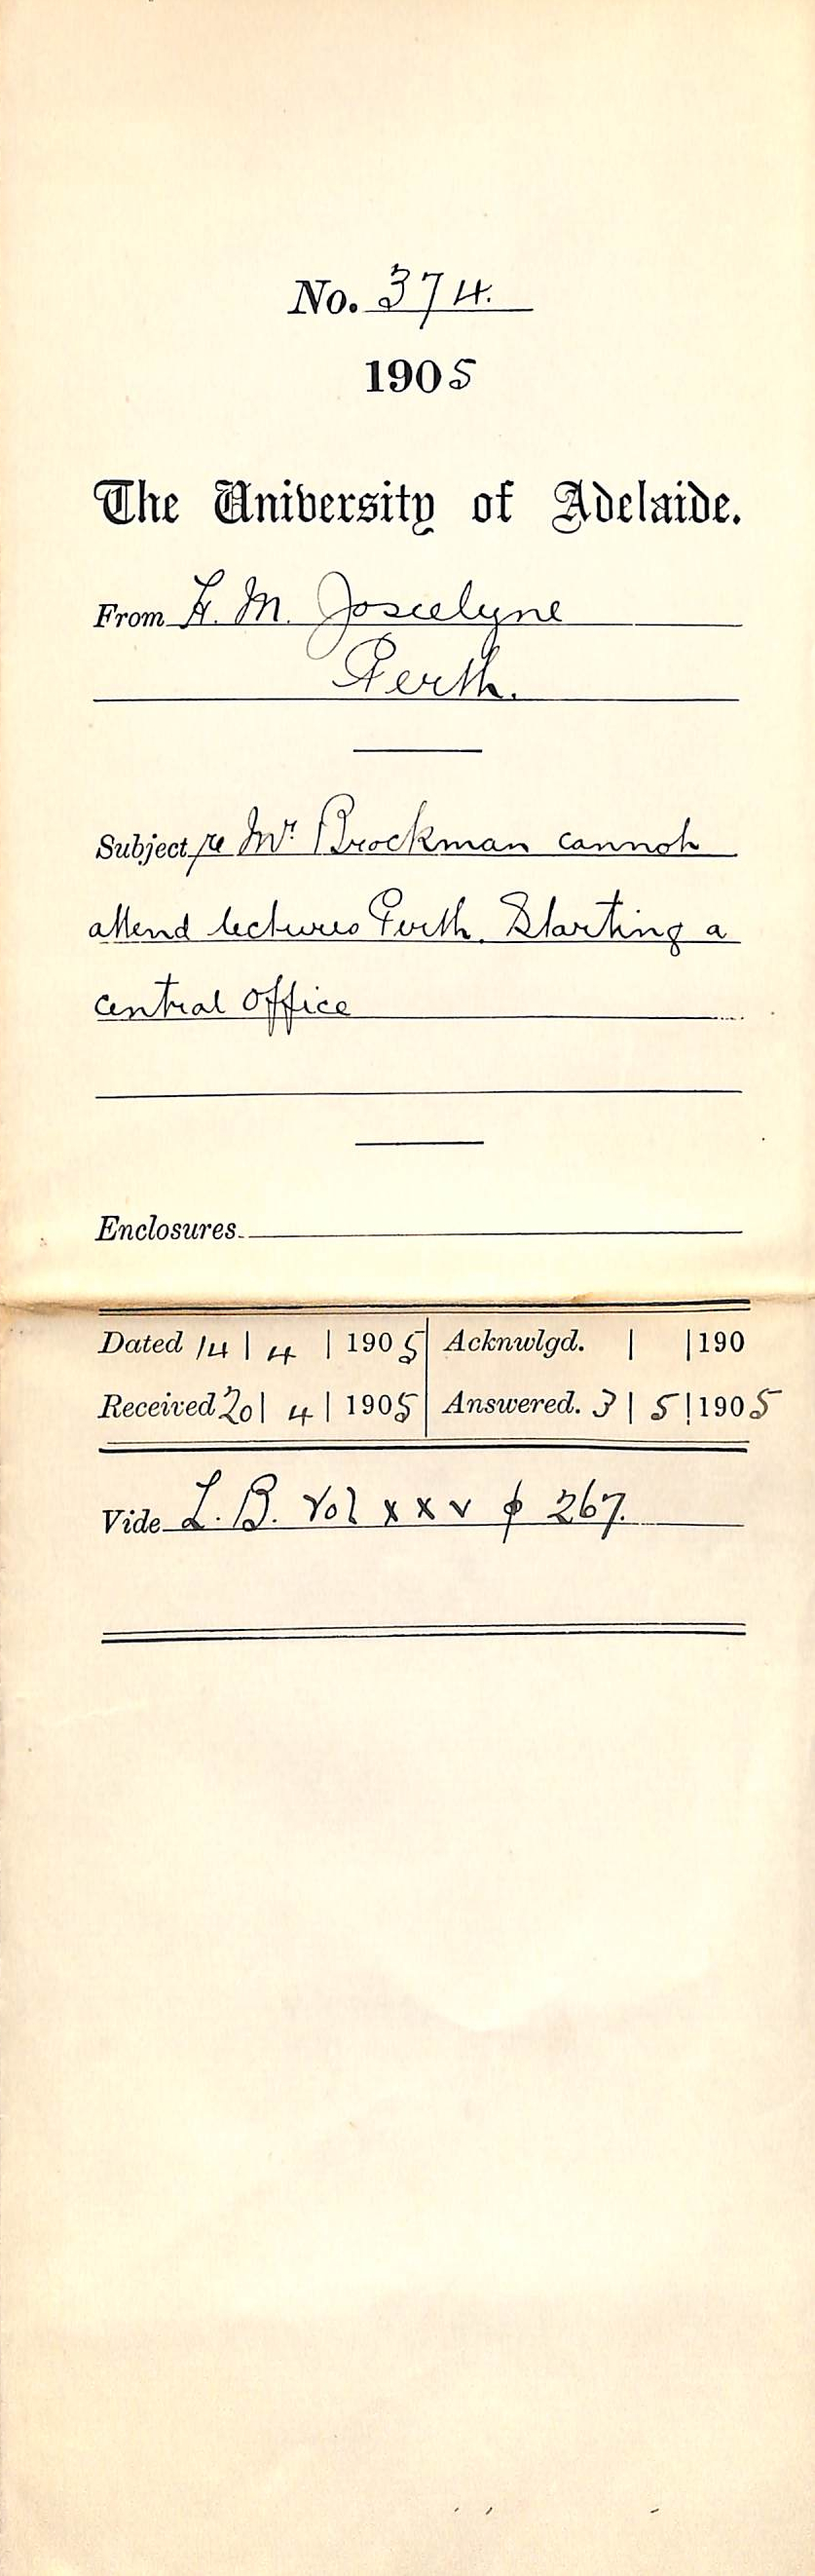 No. 374.
1905
The University of Adelaide.
From H. M. Joscelyne
Perth.
Subject re Mr Brockman cannot
attend lectures Perth. Starting a
central office
Enclosures
Dated 14 | 4 | 1905 Acknwlgd. | | 190
Received 20 | 4 | 1905 Answered. 3 | 5 | 1905
Vide L. B. Vol xxv p 267.